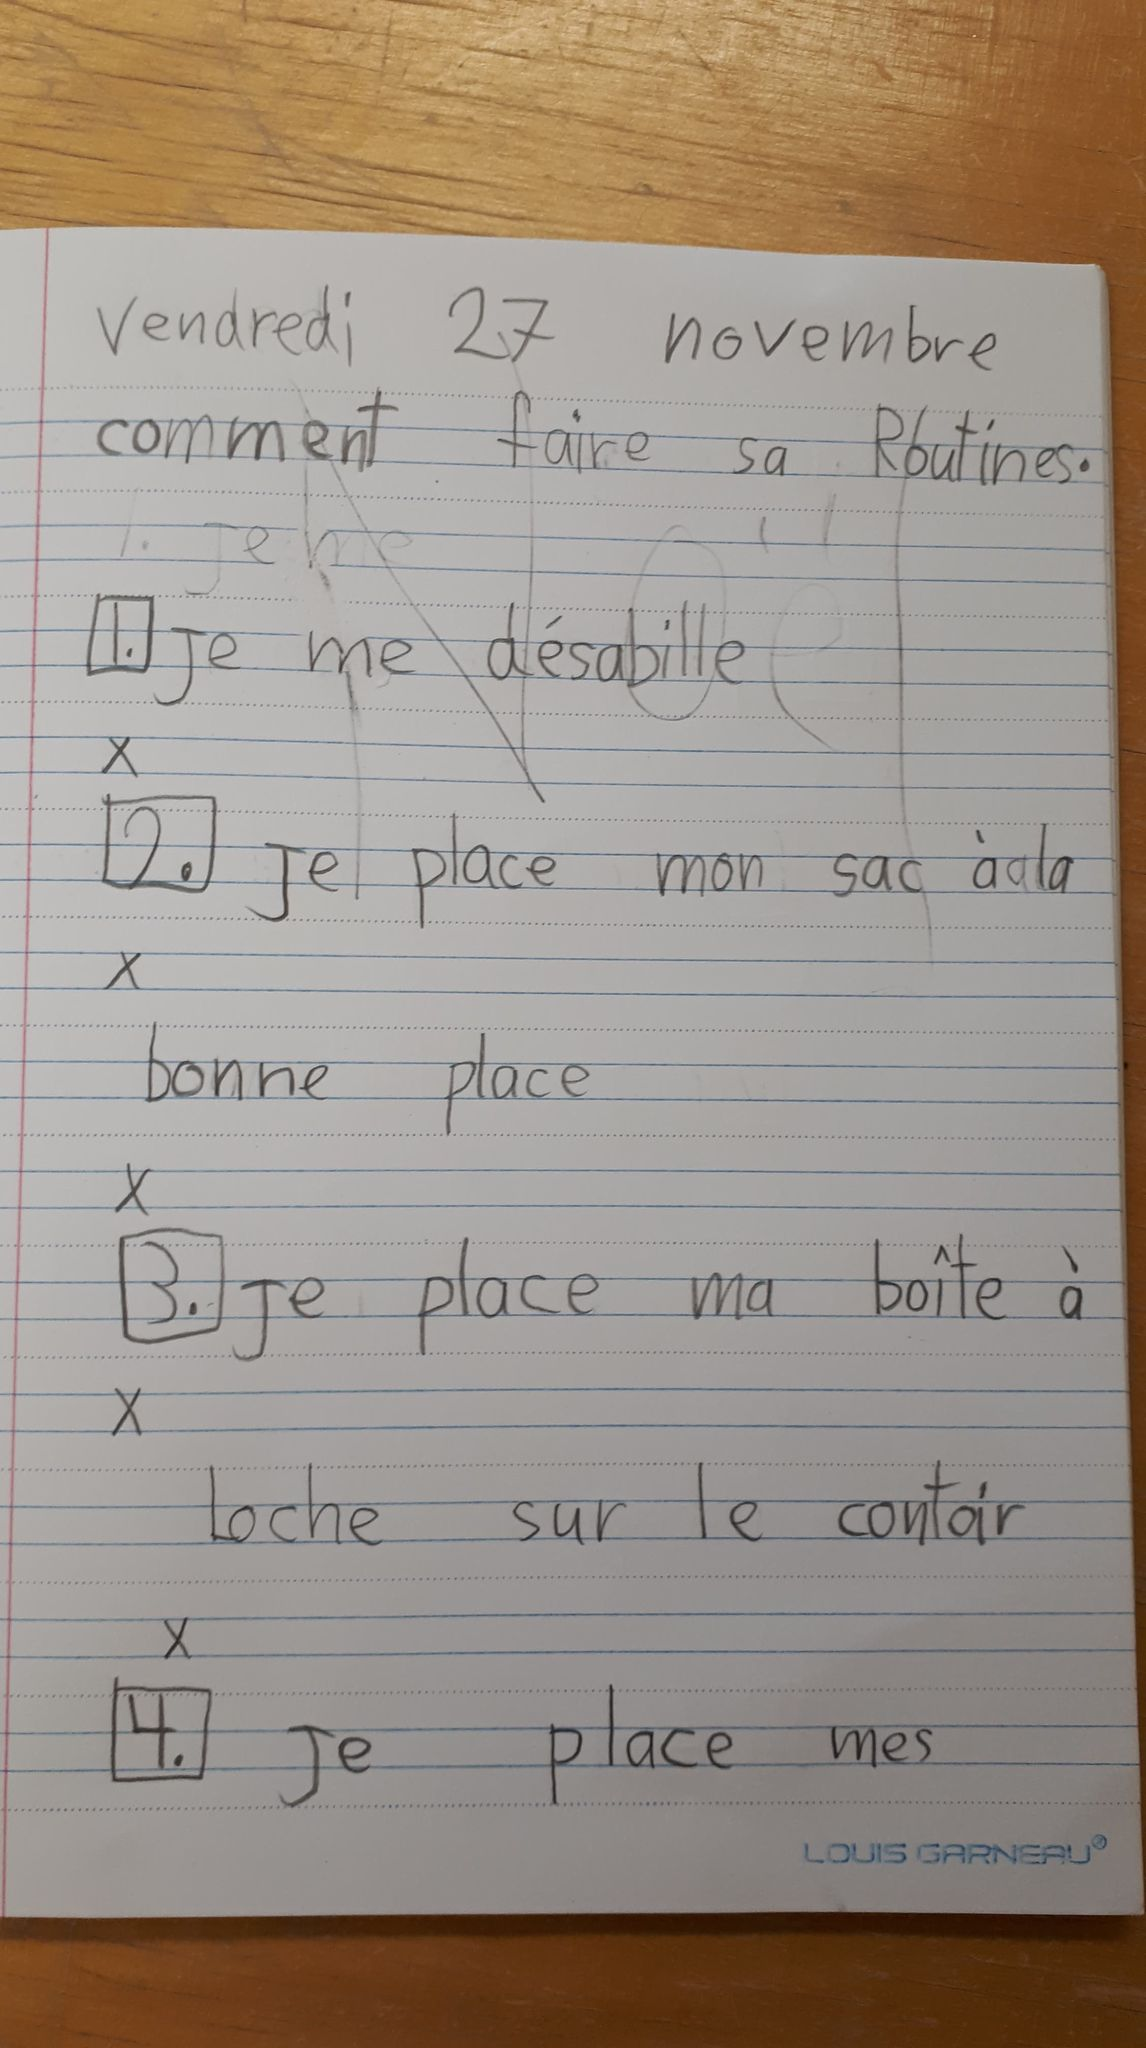 vendredi 27 novembre
comment faire sa Routines.
1. je me
1. je me désabille
x
2. je place mon sac à la
x
bonne place
x
3. je place ma boîte à
x
loche sur le contoir
x
4. je place mes
LOUIS GARNEAU®